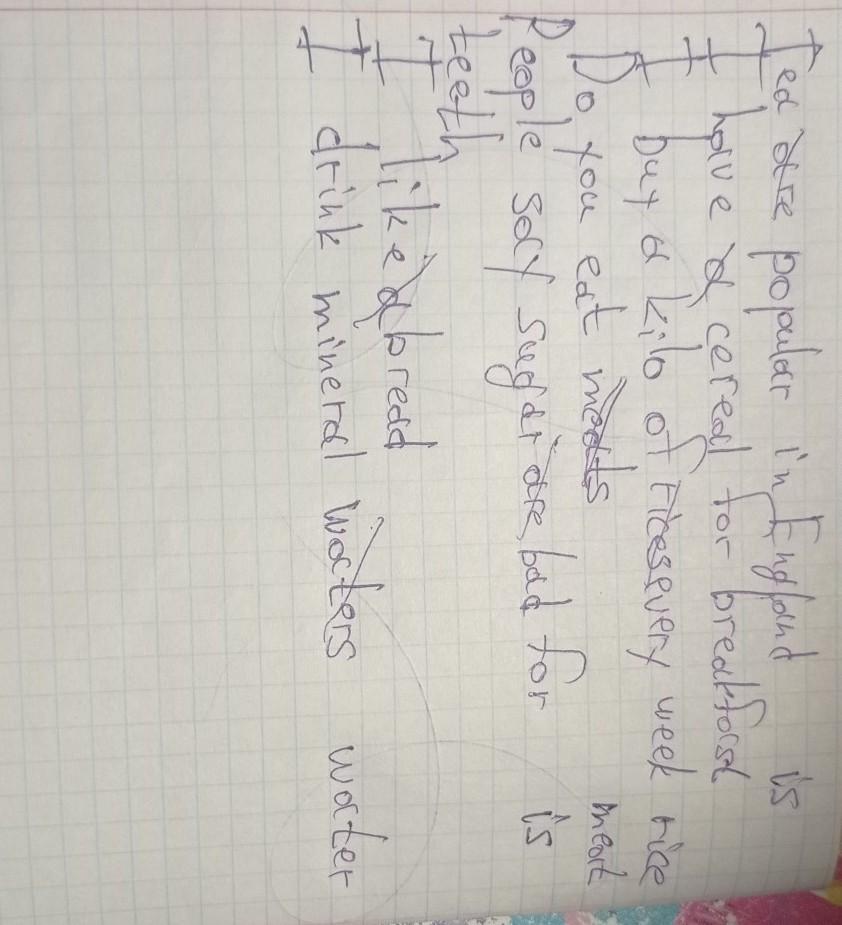 Tea are popular in England is
I have a cereal for breakfast
I buy a kilo of rices every week rice
Do you eat meats meat
People say sugar are bad for is
teeth
I like a bread
I drink mineral waters water